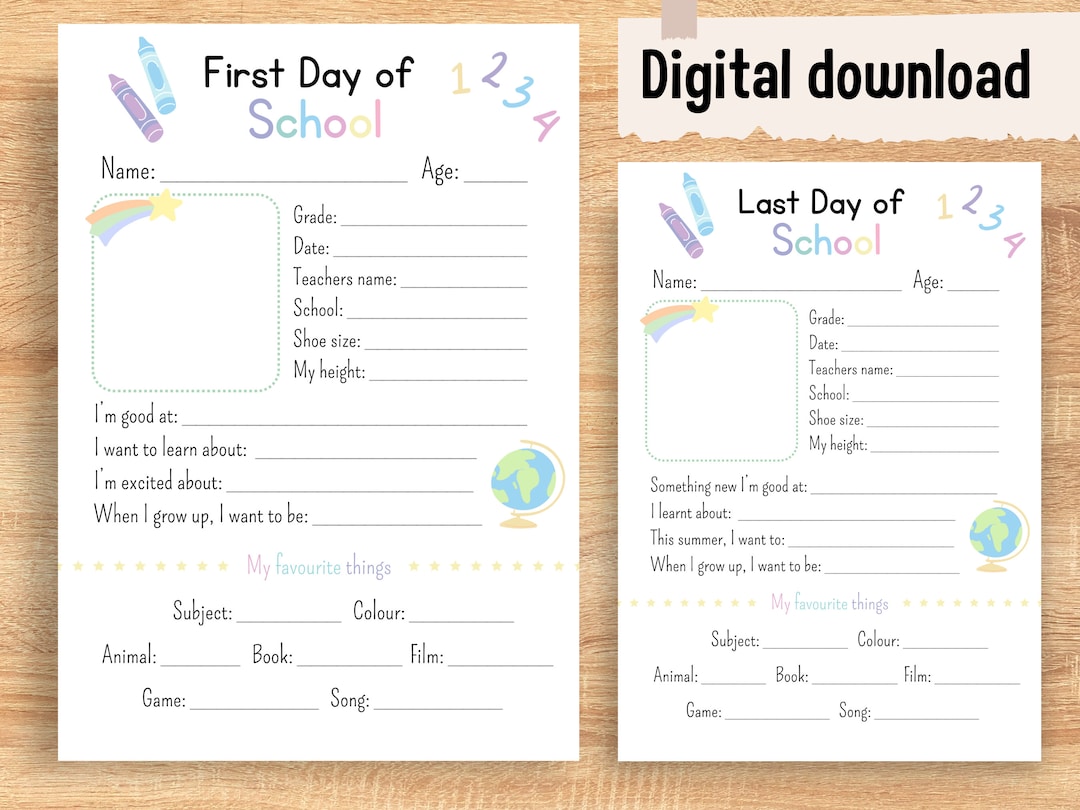 First Day of
School
1 2 3 4
Name: Age:
Grade:
Date:
Teachers name:
School:
Shoe size:
My height:
I'm good at:
I want to learn about:
I'm excited about:
When I grow up, I want to be:
My favourite things
Subject: Colour:
Animal: Book: Film:
Game: Song:
Digital download
Last Day of
School
1 2 3 4
Name: Age:
Grade:
Date:
Teachers name:
School:
Shoe size:
My height:
Something new I'm good at:
I learnt about:
This summer, I want to:
When I grow up, I want to be:
My favourite things
Subject: Colour:
Animal: Book: Film:
Game: Song: